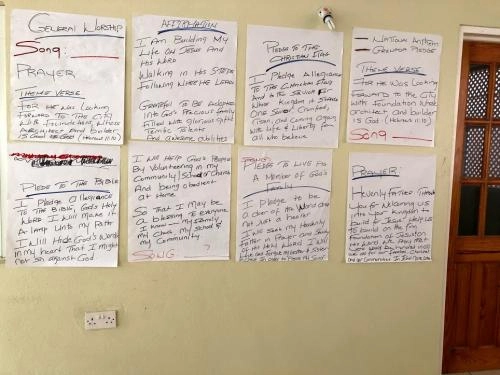 General Worship
Song:
Prayer
Theme Verse
For He was Looking
Forward to the City
With Foundations, Whose
Architect and Builder
is God (Hebrews 11:10)
Affirmation
I Am Building My
Life On Jesus And
His Word
Walking in His Steps
Following Where He Leads
Grateful To Be Adopted
Into God's Precious Family
Filled With Glorious Gifts
Terrific Talents
And Awesome Abilities
Pledge To The
Christian Flag
I Pledge Allegiance
To The Christian Flag
And to the Savior For
Whose Kingdom it Stands
One Savior Crucified,
Risen, and Coming Again
With Life & Liberty for
all who believe
National Anthem
Grenada Pledge
Theme Verse
For He was Looking
Forward to the City
with Foundation whose
architect, and builder
is God (Hebrews 11:10)
Song
Pledge To The Bible
I Pledge Allegiance
To The Bible, God's Holy
Word. I Will Make it
A Lamp Unto My Path
I Will Hide God's Words
in my heart That I might
not sin against God.
I Will Help God's People
By Volunteering in My
Community/School/Church
And being obedient
at Home
So That I May be
A Blessing To Everyone
I Know - My Family,
My Church, My School &
My Community
Song ?
Pledge To Live For
A Member of God's
Family
I Pledge to be
a doer of the Word and
not just a hearer
I Will Seek my Heavenly
Father in Prayer and Study
of His Holy Word I Will
Prayer
Heavenly Father Thank
You for Welcoming us
into your Kingdom to
build for Jesus Help us
to build on the firm
Foundation of Jesus